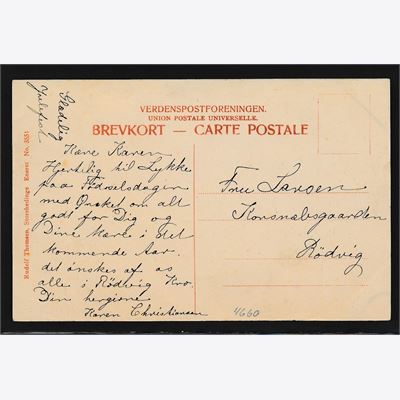 Glædelig
Julefest
VERDENSPOSTFORENINGEN.
UNION POSTALE UNIVERSELLE.
BREVKORT — CARTE POSTALE
Kære Karen
Hjertelig til Lykke
paa Fødselsdagen
med Ønsket om alt
godt for Dig og
Dine Kære i det
kommende Aar.
det ønskes af os
alle i Rødvig Kro.
Din hengivne
Karen Christiansen
Fru Larsen
Korsnabsgaarden
Rödvig
4660
Rudolf Thomsen, Storehedinge Eneret. No.